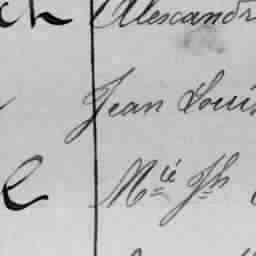 Alexandr
Jean Louis
Mie Jh